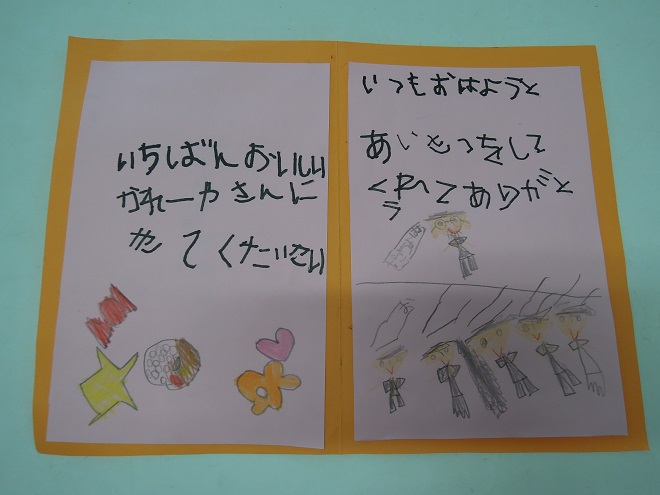 いちばんおいしい
かれーやさんに
きてください
いつもおはようと
あいさつをして
くれてありがと
う